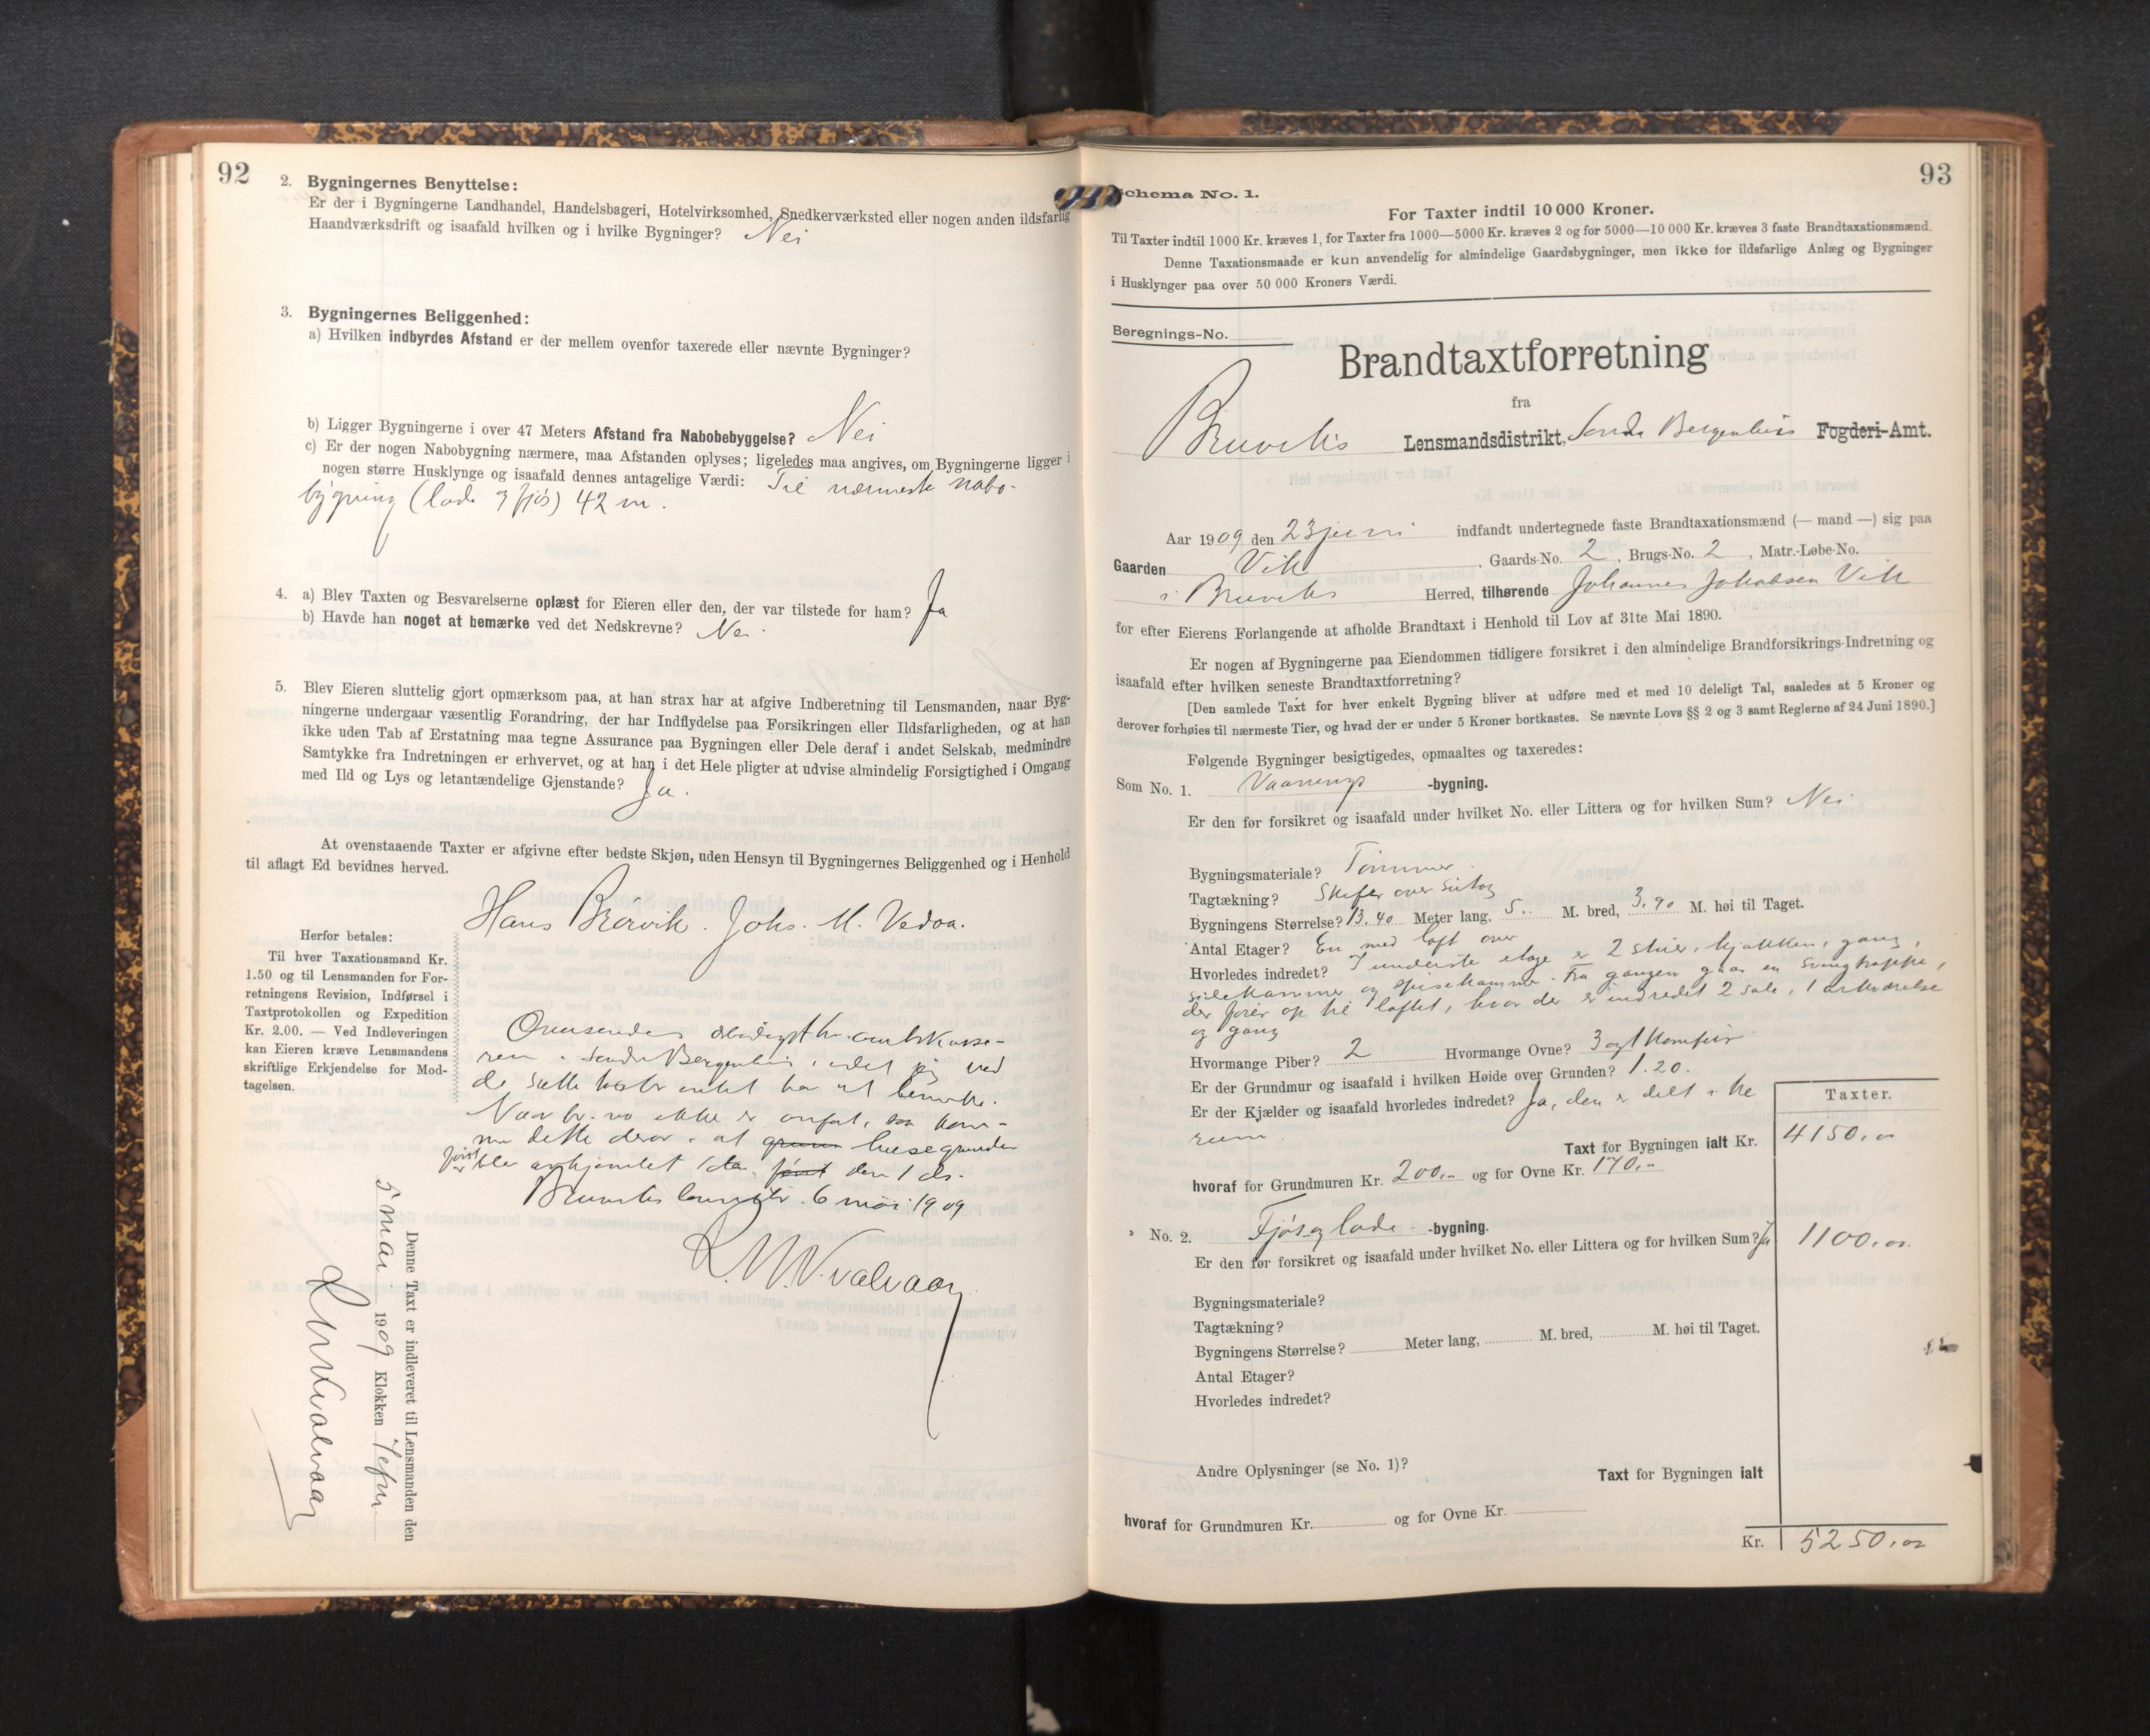 92
2. Bygningernes Benyttelse:
Er der i Bygningerne Landhandel, Handelsbageri, Hotelvirksomhed, Snedkerværksted eller nogen anden ildsfarlig
Haandværksdrift og isaafald hvilken og i hvilke Bygninger? Nei
3. Bygningernes Beliggenhed:
a) Hvilken indbyrdes Afstand er der mellem ovenfor taxerede eller nævnte Bygninger?
b) Ligger Bygningerne i over 47 Meters Afstand fra Nabobebyggelse? Nei
c) Er der nogen Nabobygning nærmere, maa Afstanden oplyses; ligeledes maa angives, om Bygningerne ligger i
nogen større Husklynge og isaafald dennes antagelige Værdi: Til nærmeste nabo-
bygning (lade & fjøs) 42 m.
4. a) Blev Taxten og Besvarelserne oplæst for Eieren eller den, der var tilstede for ham? Ja
b) Havde han noget at bemærke ved det Nedskrevne? Nei.
5. Blev Eieren sluttelig gjort opmærksom paa, at han strax har at afgive Indberetning til Lensmanden, naar Byg-
ningerne undergaar væsentlig Forandring, der har Indflydelse paa Forsikringen eller Ildsfarligheden, og at han
ikke uden Tab af Erstatning maa tegne Assurance paa Bygningen eller Dele deraf i andet Selskab, medmindre
Samtykke fra Indretningen er erhvervet, og at han i det Hele pligter at udvise almindelig Forsigtighed i Omgang
med Ild og Lys og letantændelige Gjenstande? Ja.
At ovenstaaende Taxter er afgivne efter bedste Skjøn, uden Hensyn til Bygningernes Beliggenhed og i Henhold
til aflagt Ed bevidnes herved.
Hans Brørvik. Johs. M. Vedoa.
Herfor betales:
Til hver Taxationsmand Kr.
1.50 og til Lensmanden for For-
retningens Revision, Indførsel i
Taxtprotokollen og Expedition
Kr. 2.00. — Ved Indleveringen
kan Eieren kræve Lensmandens
skriftlige Erkjendelse for Mod-
tagelsen.
Oversendes ærbødigst hr. amtskasse-
ren i Søndre Bergenhus, idet jeg ved
de satte takster intet har at bemerke.
Naar br. no ikke er anført, saa kom-
mer dette derav, at husegrunden
først blev den 1 ds.
Bruviks 6 mai 1909
L. M. Kvalvaag
Denne Taxt er indleveret til Lensmanden den
5 mai 1909 Klokken 7 efm
L M Kvalvaag
93
Schema No. 1.
For Taxter indtil 10 000 Kroner.
Til Taxter indtil 1000 Kr. kræves 1, for Taxter fra 1000—5000 Kr. kræves 2 og for 5000—10 000 Kr. kræves 3 faste Brandtaxationsmænd.
Denne Taxationsmaade er kun anvendelig for almindelige Gaardsbygninger, men ikke for ildsfarlige Anlæg og Bygninger
i Husklynger paa over 50 000 Kroners Værdi.
Beregnings-No.
Brandtaxtforretning
fra
Bruviks Lensmandsdistrikt, Søndre Bergenhus Fogderi-Amt.
Aar 1909 den 23 juni indfandt undertegnede faste Brandtaxationsmænd (— mand —) sig paa
Gaarden Vik, Gaards-No. 2, Brugs-No. 2, Matr.-Løbe-No.
i Bruviks Herred, tilhørende Johannes Jakobsen Vik
for efter Eierens Forlangende at afholde Brandtaxt i Henhold til Lov af 31te Mai 1890.
Er nogen af Bygningerne paa Eiendommen tidligere forsikret i den almindelige Brandforsikrings-Indretning og
isaafald efter hvilken seneste Brandtaxtforretning?
[Den samlede Taxt for hver enkelt Bygning bliver at udføre med et med 10 deleligt Tal, saaledes at 5 Kroner og
derover forhøies til nærmeste Tier, og hvad der er under 5 Kroner bortkastes. Se nævnte Lovs §§ 2 og 3 samt Reglerne af 24 Juni 1890.]
Følgende Bygninger besigtigedes, opmaaltes og taxeredes:
Som No. 1. Vaanings -bygning.
Er den før forsikret og isaafald under hvilket No. eller Littera og for hvilken Sum? Nei
Bygningsmateriale? Tømmer.
Tagtækning? Skifer over sutag
Bygningens Størrelse? 13.40 Meter lang, 5.. M. bred, 3.90 M. høi til Taget.
Antal Etager? En med loft over
Hvorledes indredet? I underste etage er 2 stuer, kjøkken, gang,
sidekammer og spisekammer. Fra gangen gaar en svingtrappe,
der fører op til loftet, hvor der er indredet 2 sale, 1 arkværelse
og gang
Hvormange Piber? 2 Hvormange Ovne? 3 og 1 komfur
Er der Grundmur og isaafald i hvilken Høide over Grunden? 1.20.
Er der Kjælder og isaafald hvorledes indredet? Ja, den er delt i tre
rum.
Taxter.
Taxt for Bygningen ialt Kr. 4150,00
hvoraf for Grundmuren Kr. 200,- og for Ovne Kr. 170,-
No. 2. Fjøs og lade -bygning.
Er den før forsikret og isaafald under hvilket No. eller Littera og for hvilken Sum? Ja 1100,00
Bygningsmateriale?
Tagtækning?
Bygningens Størrelse? Meter lang, M. bred, M. høi til Taget.
Antal Etager?
Hvorledes indredet?
Andre Oplysninger (se No. 1)?
Taxt for Bygningen ialt
hvoraf for Grundmuren Kr. og for Ovne Kr.
Kr. 5250,00